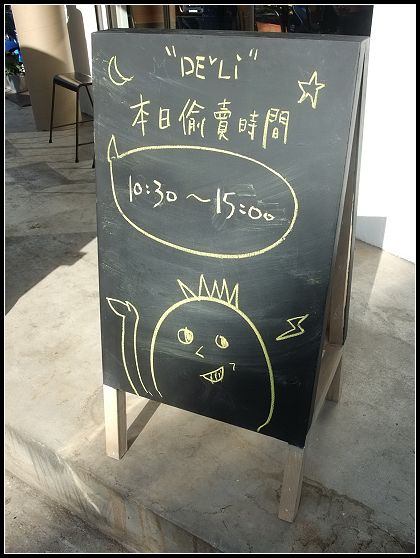 "DELi"
本日偷賣時間
10:30~15:00